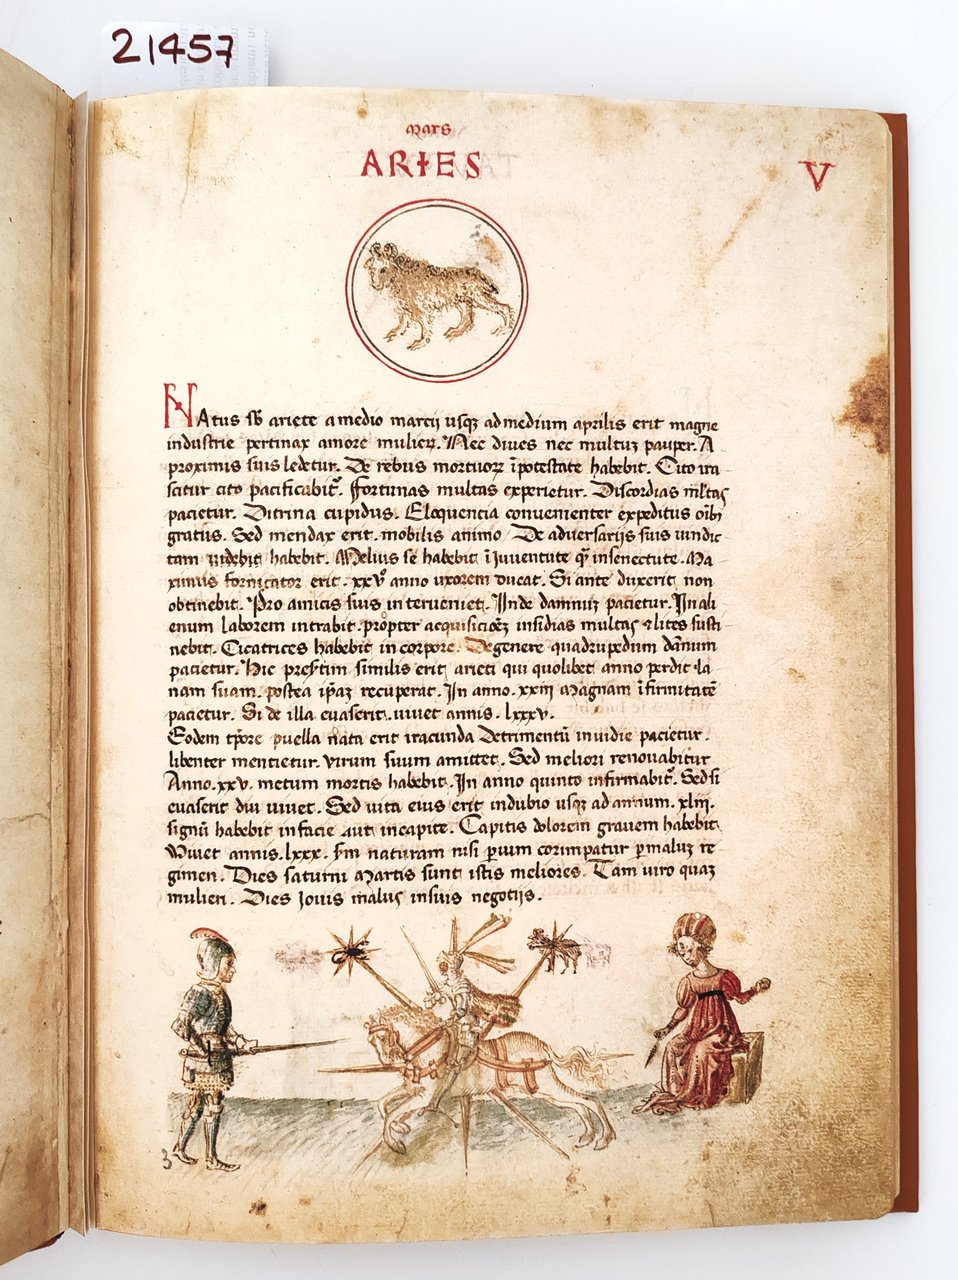 21457
mars
ARIES
V
NAtus sb ariete a medio marcij usqz ad medium aprilis erit magne
industrie pertinax amore mulierz. Nec diues nec multuz pauper. A
proximis suis ledetur. De rebus mortuorz ipotestate habebit. Cito ira
scitur cito pacificabit. Fortunas multas experietur. Discordias mltas
pacietur. Ditrina cupidus. Eloquencia conuenienter expeditus oibz
gratus. Sed mendax erit. mobilis animo. De aduersarijs suis uindic
tam uidebit habebit. Melius se habebit i iuuentute q insenectute. Ma
ximus fornicator erit. xxv anno uxorem ducat. Si ante duxerit non
obtinebit. Pro amicis suis interueniet. Inde damnuz pacietur. In ali
enum laborem intrabit. propter acquisicioez insidias multas z lites susti
nebit. Cicatrices habebit in corpore. Degenere quadrupedum danum
pacietur. Hic presetim similis erit arieti qui quolibet anno perdit la
nam suam. postea ipaz recuperat. In anno. xxiij magnam ifirmitate
pacietur. Si de illa euaserit. uiuet annis. lxxxv.
Eodem tpore puella nata erit iracunda Detrimentu inuidie pacietur.
libenter mentietur. virum suum amittet. Sed meliori renouabitur
Anno. xxv. metum mortis habebit. In anno quinto infirmabit. Sed si
euaserit diu uiuet. Sed uita eius erit indubio usqz ad annum. xliij.
signu habebit in facie aut incapite. Capitis dolorem grauem habebit
Viuet annis. lxxx. sm naturam nisi pium corimpatur p maluz re
gimen. Dies saturni Martis sunt istis meliores. Tam uiro quaz
mulieri. Dies Jouis malus insuis negotijs.
3